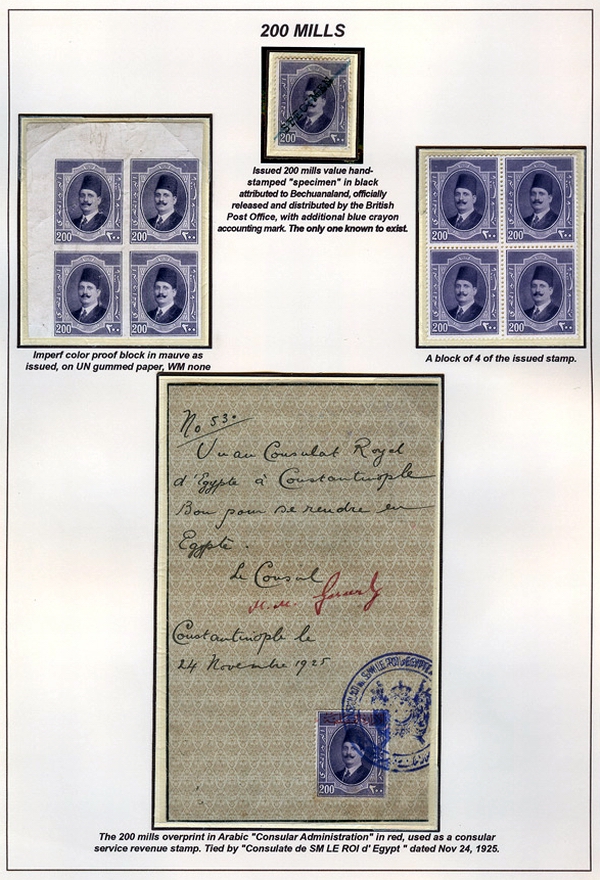 200 MILLS
SPECIMEN
200 ٢٠٠
Issued 200 mills value hand-
stamped "specimen" in black
attributed to Bechuanaland, officially
released and distributed by the British
Post Office, with additional blue crayon
accounting mark. The only one known to exist.
200 ٢٠٠ 200 ٢٠٠
200 ٢٠٠ 200 ٢٠٠
Imperf color proof block in mauve as
issued, on UN gummed paper, WM none
200 ٢٠٠ 200 ٢٠٠
200 ٢٠٠ 200 ٢٠٠
A block of 4 of the issued stamp.
No 530
Vu au Consulat Royal
d'Egypte à Constantinople
Bon pour se rendre en
Egypte.
Le Consul
Constantinople le
24 Novembre 1925
200 ٢٠٠
The 200 mills overprint in Arabic "Consular Administration" in red, used as a consular
service revenue stamp. Tied by "Consulate de SM LE ROI d' Egypt " dated Nov 24, 1925.